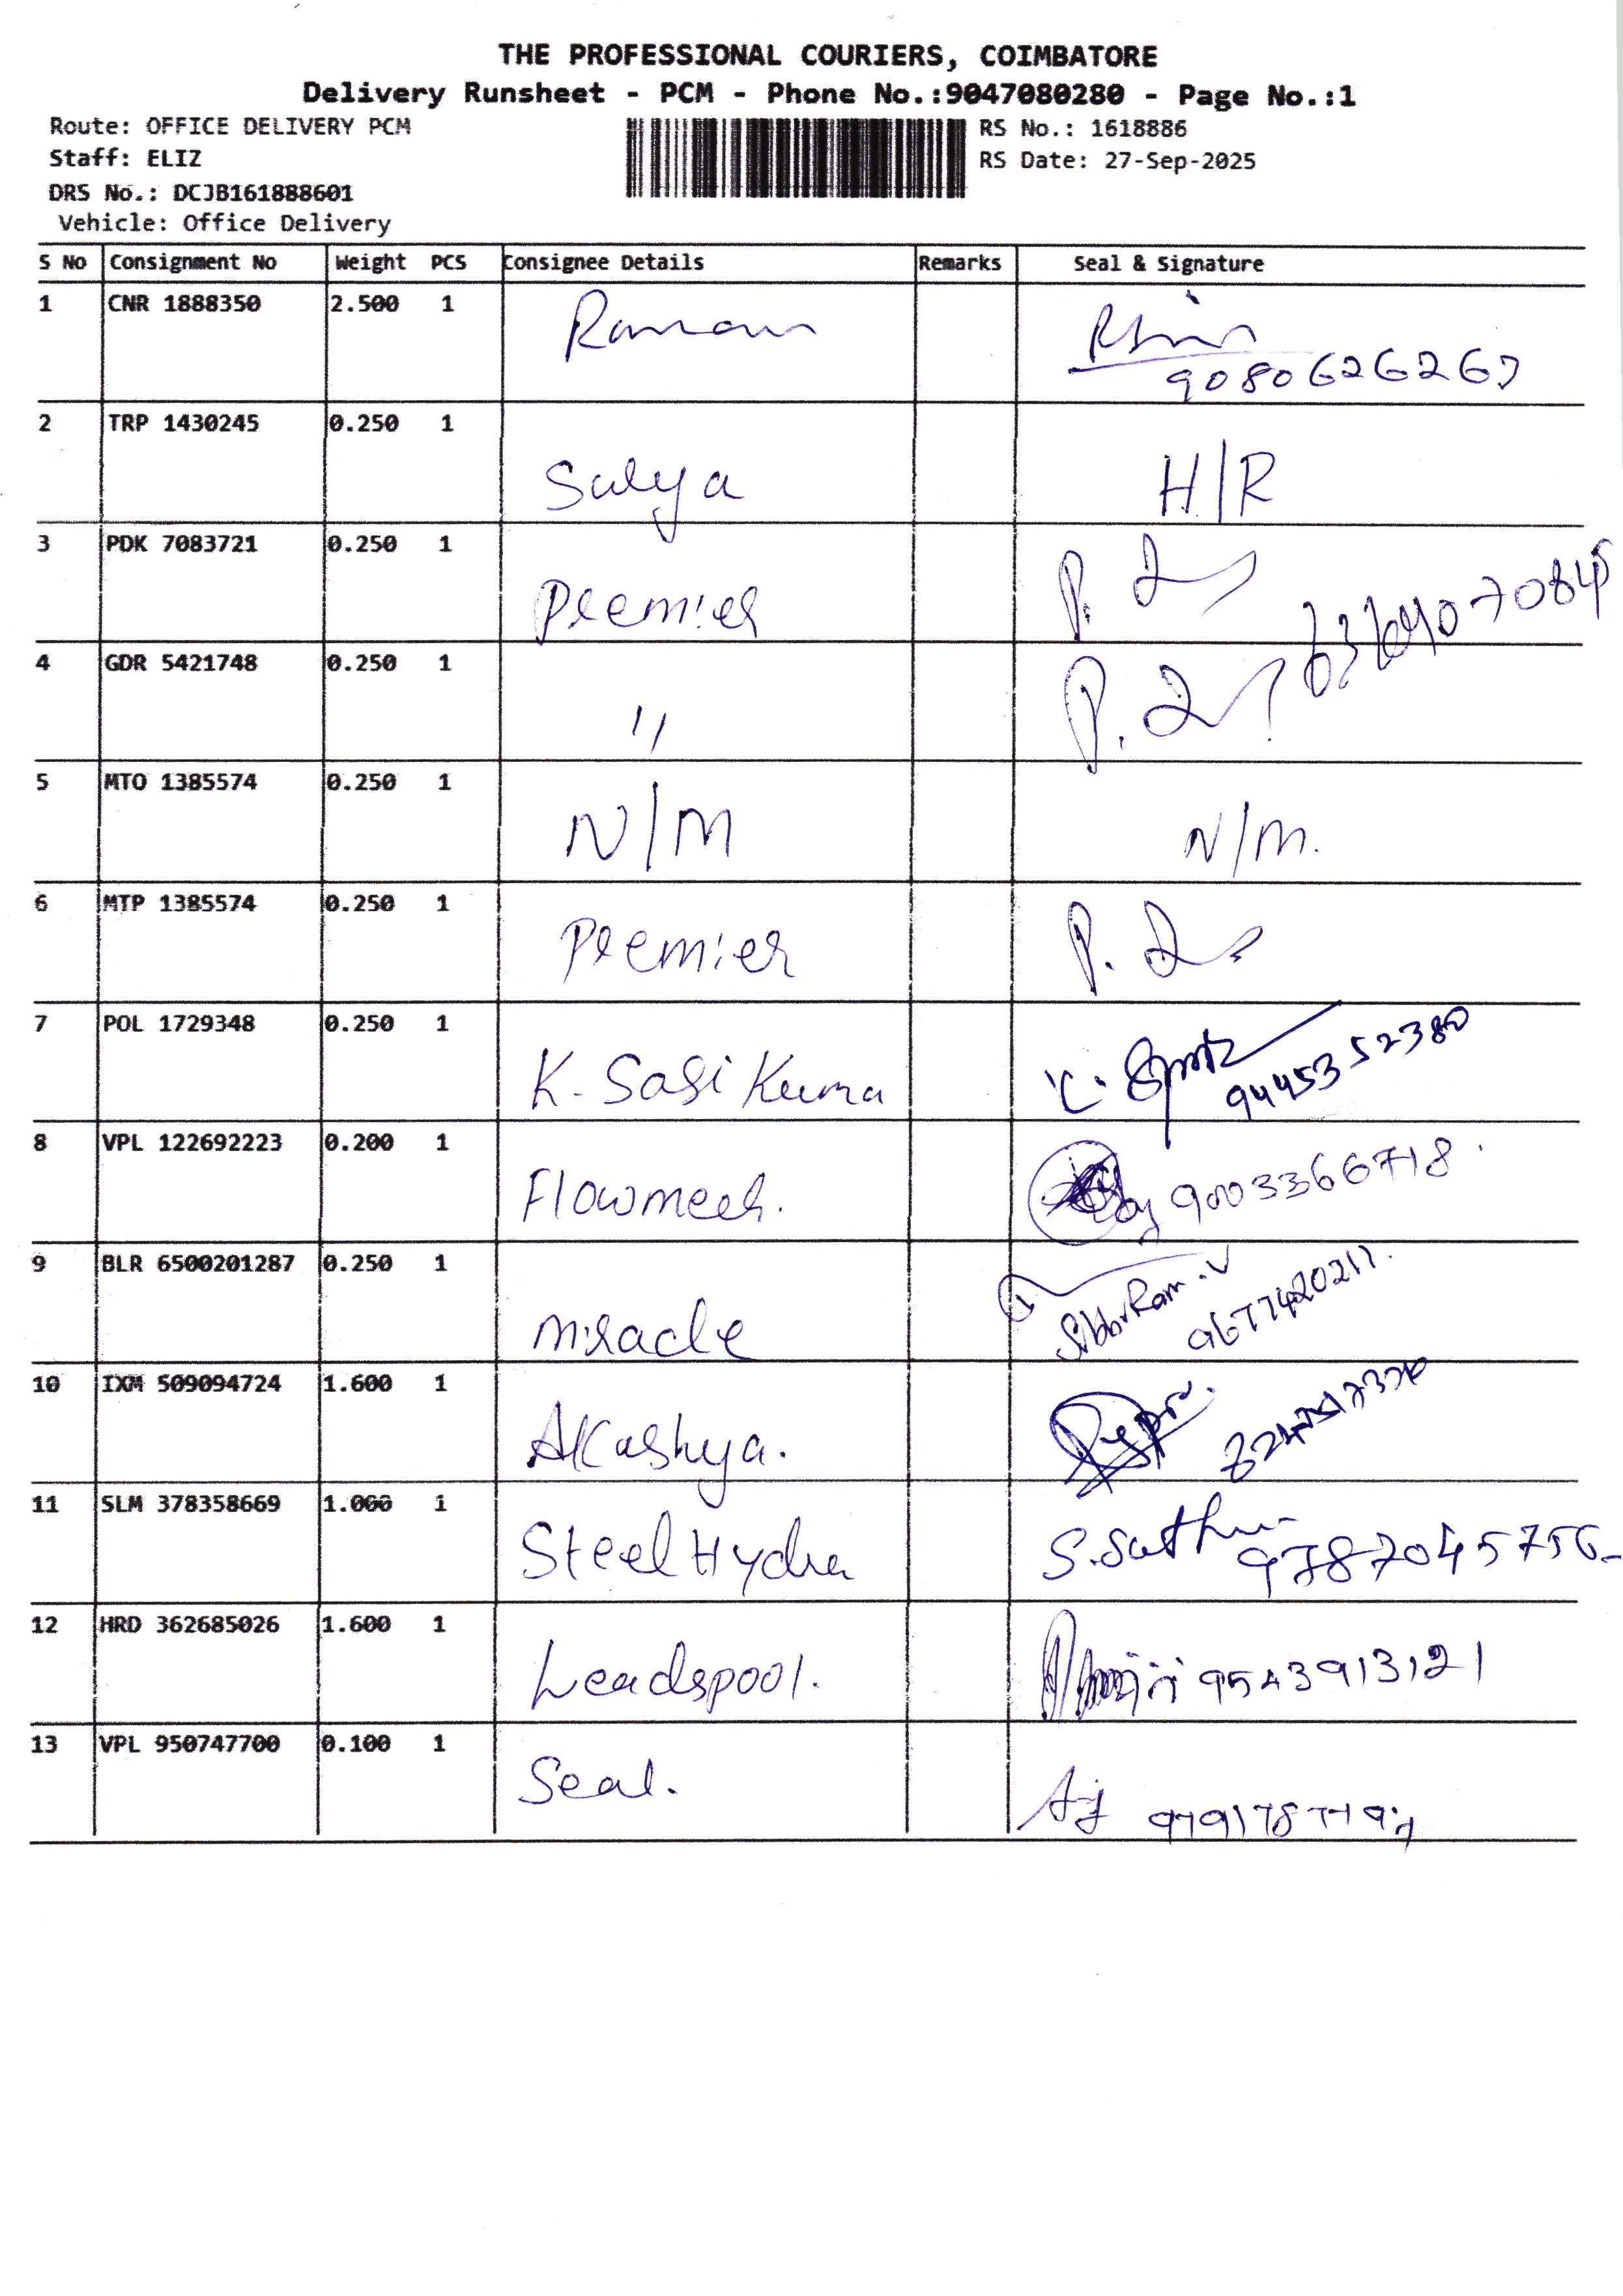 THE PROFESSIONAL COURIERS, COIMBATORE
Delivery Runsheet - PCM - Phone No.:9047080280 - Page No.:1
Route: OFFICE DELIVERY PCM
RS No.: 1618886
Staff: ELIZ
RS Date: 27-Sep-2025
DRS No.: DCJB161888601
Vehicle: Office Delivery
S No Consignment No Weight PCS Consignee Details Remarks Seal & Signature
1 CNR 1888350 2.500 1
9080626267
2 TRP 1430245 0.250 1
H/R
3 PDK 7083721 0.250 1
Premier
4 GDR 5421748 0.250 1
"
5 MTO 1385574 0.250 1
N/M N/M.
6 MTP 1385574 0.250 1
Premier
7 POL 1729348 0.250 1
K. Sasi Kuma 9445352380
8 VPL 122692223 0.200 1
Flowmech. 9003366718
9 BLR 6500201287 0.250 1
miracle
10 IXM 509094724 1.600 1
Akashya.
11 SLM 378358669 1.000 1
Steel Hydra 9787045756
12 HRD 362685026 1.600 1
Leadspool. 9543913121
13 VPL 950747700 0.100 1
Seal.